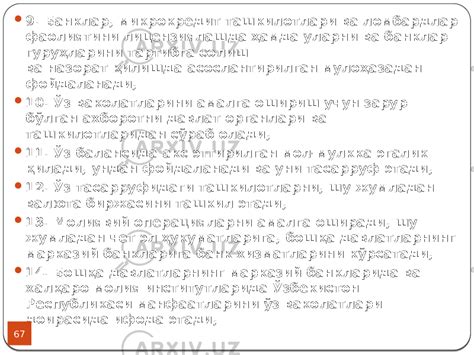 9- Банклар, микрокредит ташкилотлари ва ломбардлар
фаолиятини лицензиялашда ҳамда уларни ва банклар
гуруҳларини тартибга солиш
ва назорат қилишда асослантирилган мулоҳазадан
фойдаланади;
10- Ўз ваколатларини амалга ошириш учун зарур
бўлган ахборотни давлат органлари ва
ташкилотларидан сўраб олади;
11- Ўз балансида акс эттирилган мол-мулкка эгалик
қилади, ундан фойдаланади ва уни тасарруф этади;
12- Ўз тасарруфидаги ташкилотларни, шу жумладан
валюта биржасини ташкил этади;
13- Молиявий операцияларни амалга оширади, шу
жумладан чет эл ҳукуматларига, бошқа давлатларнинг
марказий банкларига банк хизматларини кўрсатади;
14- Бошқа давлатларнинг марказий банкларида ва
халқаро молия институтларида Ўзбекистон
Республикаси манфаатларини ўз ваколатлари
доирасида ифода этади;
67
ARXIV.UZ
ARXIV.UZ
ARXIV.UZ
ARXIV.UZ